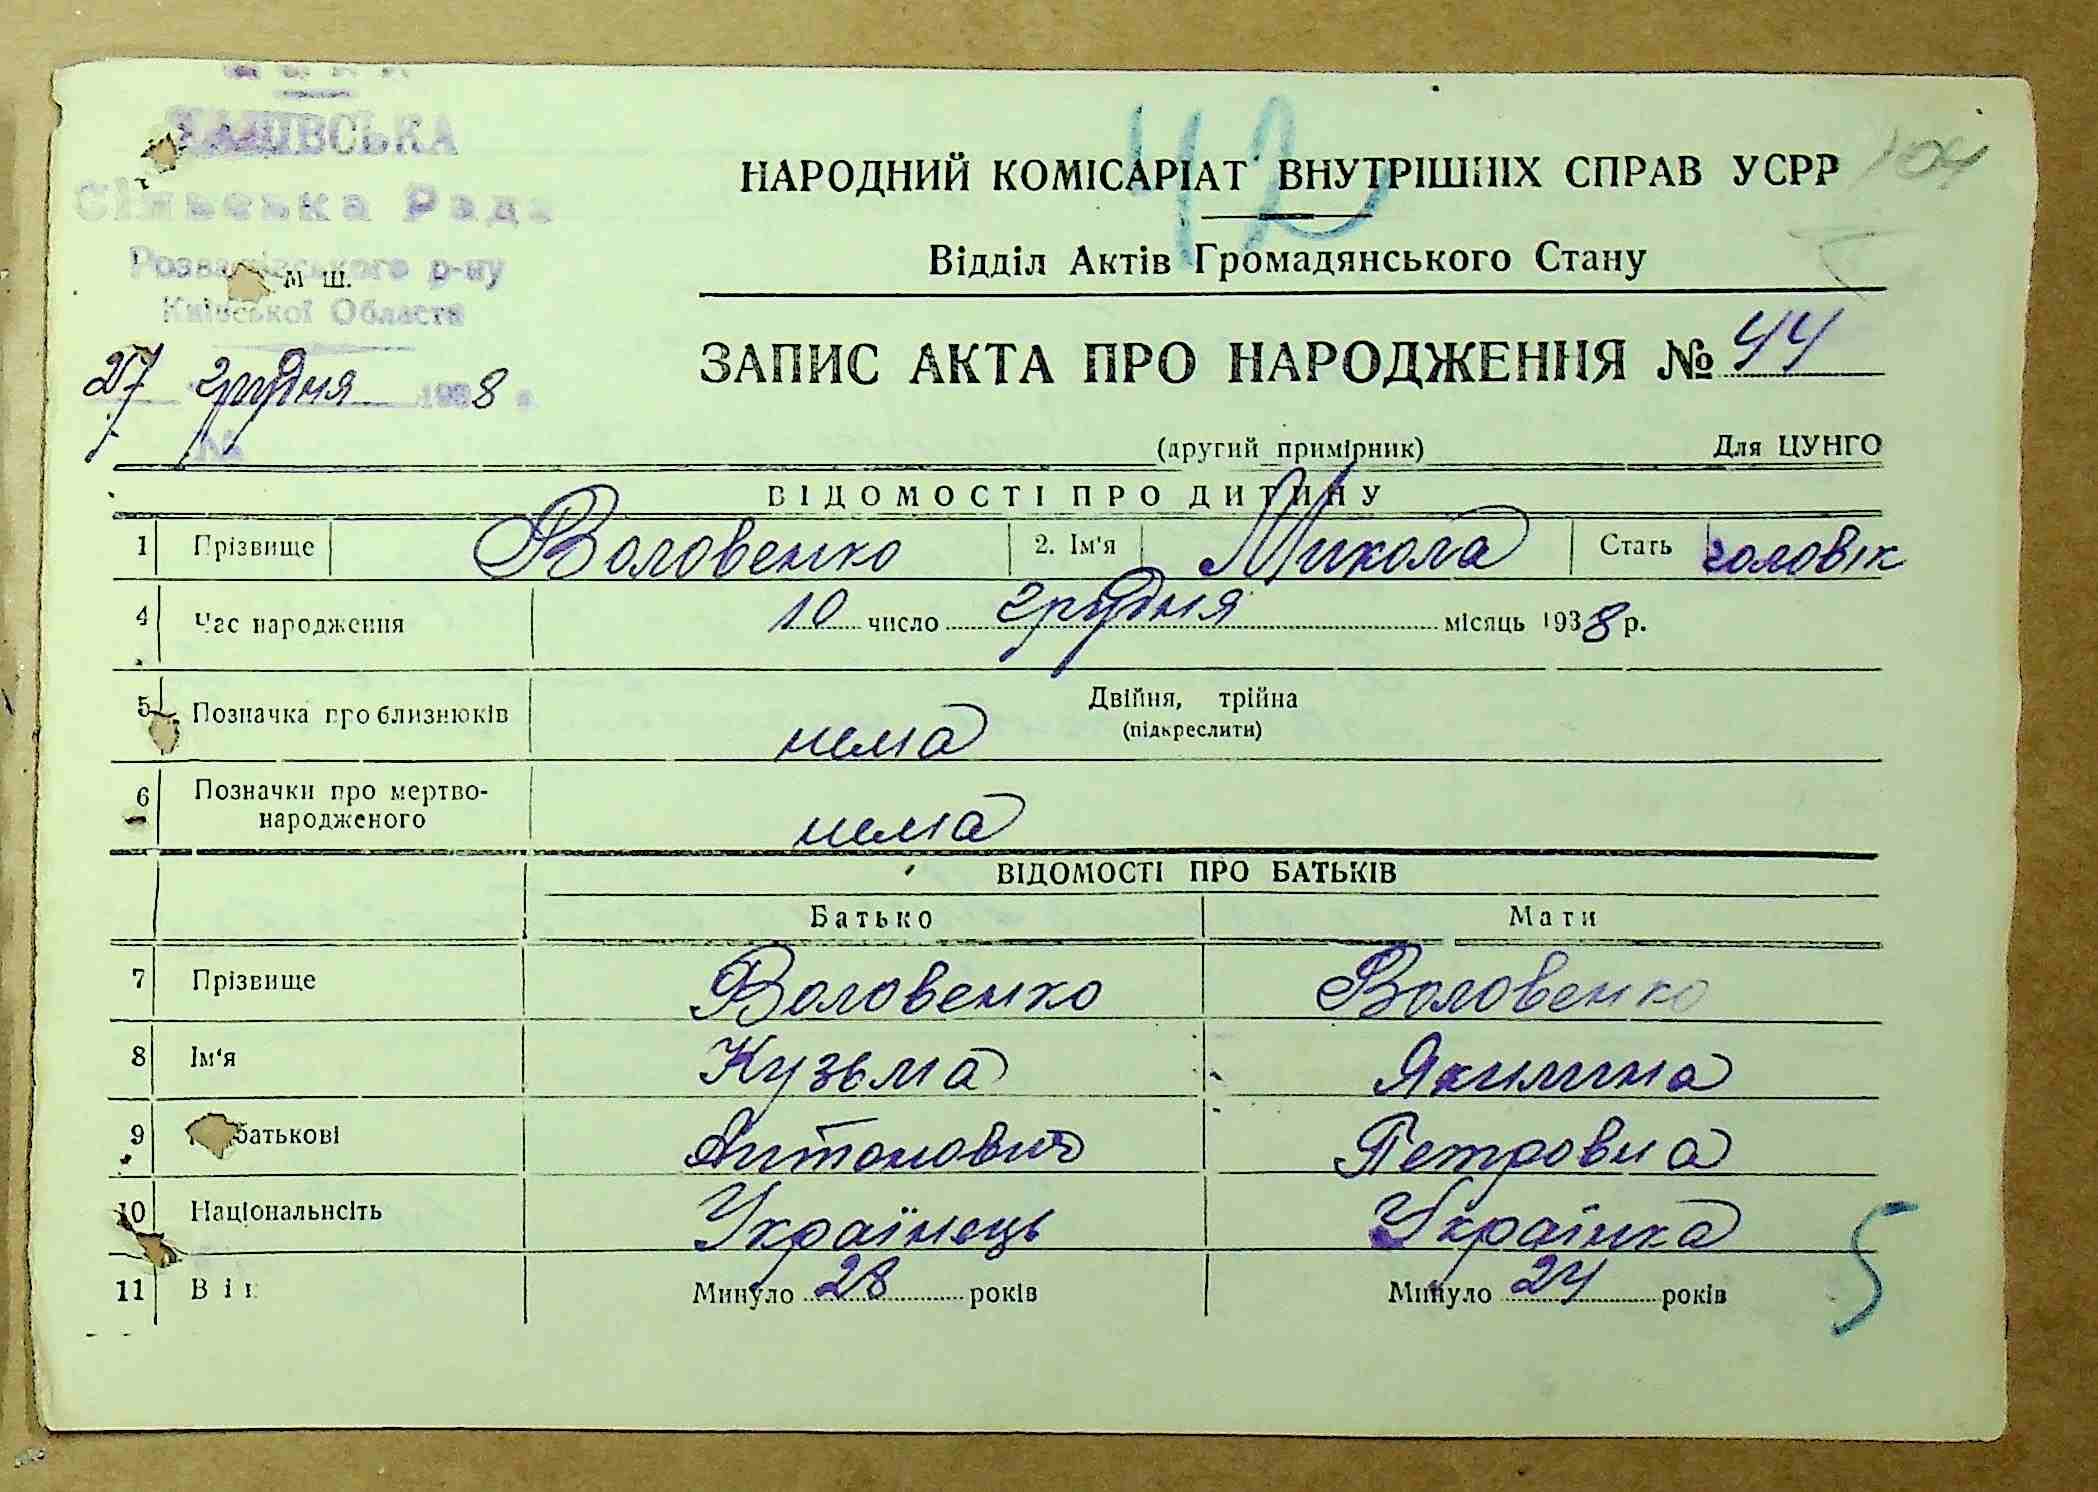 Сільська Рада
Розважівського р-ну
М Ш.
Київської Области
27 грудня 1938 р.
№
42
104
НАРОДНИЙ КОМІСАРІАТ ВНУТРІШНІХ СПРАВ УСРР
Відділ Актів Громадянського Стану
ЗАПИС АКТА ПРО НАРОДЖЕННЯ № 44
(другий примірник) Для ЦУНГО
ВІДОМОСТІ ПРО ДИТИНУ
1 Прізвище Воловенко 2. Ім'я Микола Стать чоловік
4 Час народження 10 число грудня місяць 1938 р.
5 Позначка про близнюків нема Двійня, трійна
(підкреслити)
6 Позначки про мертво-
народженого нема
ВІДОМОСТІ ПРО БАТЬКІВ
Батько Мати
7 Прізвище Воловенко Воловенко
8 Ім'я Кузьма Якилина
9 батькові Антонович Петровна
10 Національнсіть Українець Українка
11 Вік Минуло 28 років Минуло 24 років
5